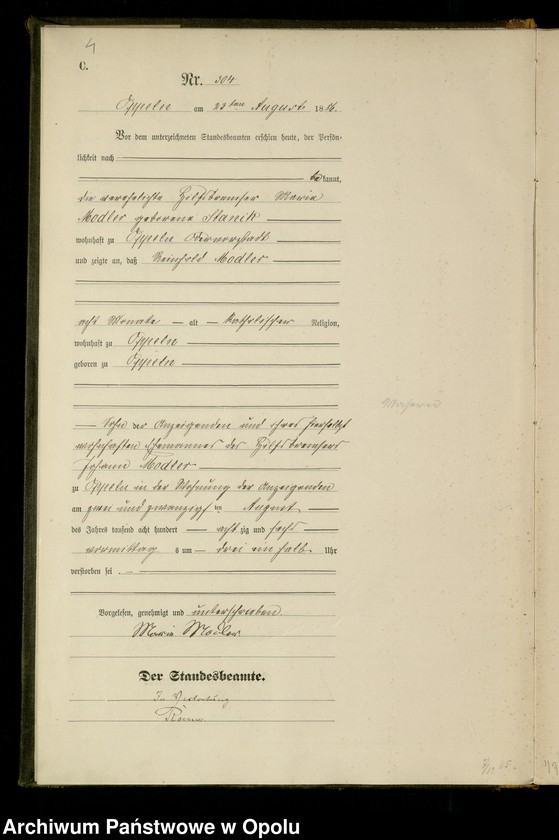 4
C.
Nr. 304
Oppeln am 23ten August 1886.
Vor dem unterzeichneten Standesbeamten erschien heute, der Persön-
lichkeit nach
bekannt,
die verehelichte Hilfsbremser Marie
Modler geborene Stanik
wohnhaft zu Oppeln Odervorstadt
und zeigte an, daß Reinhold Modler
acht Monate alt katholischer Religion,
wohnhaft zu Oppeln
geboren zu Oppeln
Sohn der Anzeigenden und ihres hierselbst
wohnhaften Ehemannes des Hilfsbremsers
Johann Modler
zu Oppeln in der Wohnung der Anzeigenden
am zwei und zwanzigsten August
des Jahres tausend acht hundert acht zig und sechs
vormittags um drei ein halb Uhr
verstorben sei.
Vorgelesen, genehmigt und unterschrieben.
Marie Modler
Der Standesbeamte.
In Vertretung
Archiwum Państwowe w Opolu